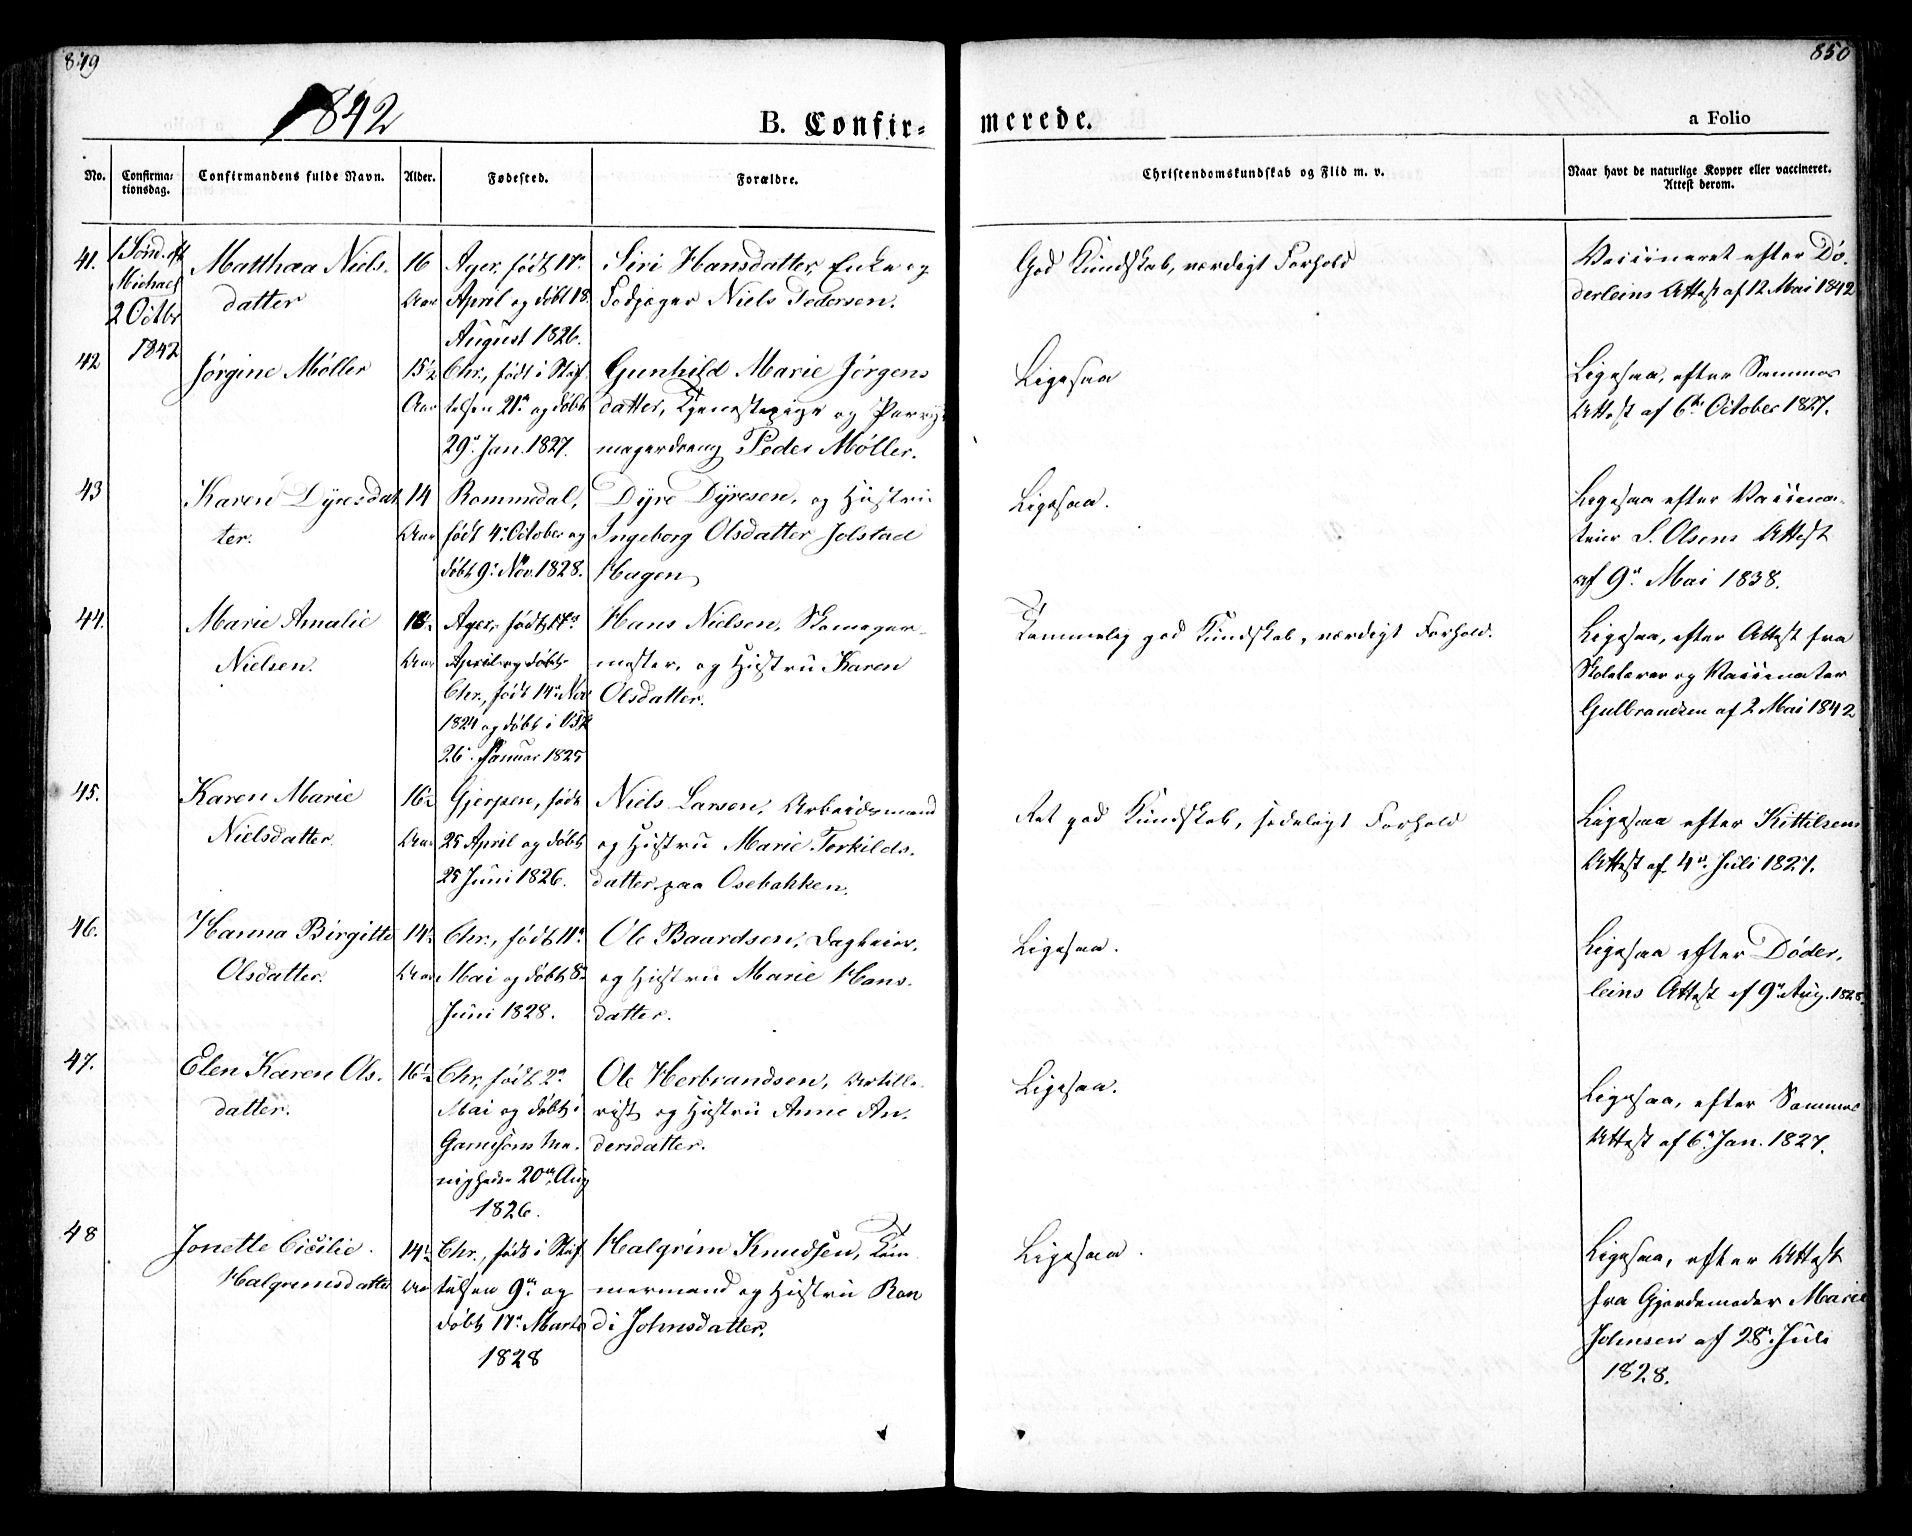 849
850
1842
B. Confir= merede.
a Folio
No.
Confirma-
tionsdag.
Confirmandens fulde Navn.
Alder.
Fødested.
Forældre.
Christendomskundskab og Flid m. v.
Naar havt de naturlige Kopper eller vaccineret.
Attest derom.
41.
1 Sønd. eft
Michael
2 Octbr
1842
Matthæa Niels-
datter
16
Aar
Ager, født 17de
April og døbt 18
August 1826.
Siri Hansdatter, Enke og
Fodjæger Niels Pedersen.
God Kundskab, værdigt Forhold
Vaccineret efter Dø-
derleins Attest af 12 Mai 1842
42
Jørgine Møller
15½
Aar
Chr., født i Stif
telsen 21de og døbt
29de Jan. 1827.
Gunhild Marie Jørgens
datter, Tjenestepige og Paryk
magerdreng Peder Møller.
Ligesaa
Ligesaa, efter Sammes
Attest af 6te October 1827.
43
Karen Dyresdat
ter.
14
Aar
Rommedal,
født 4de October og
døbt 9de Nov. 1828.
Dyre Dyresen, og Hustru
Ingeborg Olsdatter Jolstad
Hagen
Ligesaa.
Ligesaa efter Vaccina-
teur S. Olsens Attest
af 9de Mai 1838.
44.
Marie Amalie
Nielsen.
Aar
Ager, født 17de
April og døbt
Chr., født 14de Nov
1824 og døbt i
26de Januar 1825
Hans Nielsen, Skomager-
mester, og Hustru Karen
Olsdatter.
Temmelig god Kundskab, værdigt Forhold.
Ligesaa, efter Attest fra
Skolelærer og Vaccinatør
Gulbrandsen af 2 Mai 1842
45.
Karen Marie
Nielsdatter.
16½
Aar
Gjerpen, født
25 April og døbt
25 Juni 1826.
Niels Larsen, Arbeidsmand
og Hustru Marie Torkilds-
datter paa Osebakken.
Ret god Kundskab, sædeligt Forhold
Ligesaa efter Kittilsens
Attest af 4de Juli 1827.
46.
Hanna Birgitte
Olsdatter.
14½
Aar
Chr., født 11de
Mai og døbt 8de
Juni 1828.
Ole Baardsen, Dagleier,
og Hustru Marie Hans-
datter.
Ligesaa.
Ligesaa efter Døder-
leins Attest af 9de Aug. 1828.
47.
Elen Karen Ols-
datter.
16½
Chr, født 2de
Mai og døbt i
Garnisons Me-
nigheden 20de Aug
1826.
Ole Herbrandsen, Artille-
rist og Hustru Anne An-
dersdatter.
Ligesaa.
Ligesaa, efter Sammes
Attest af 6te Jan. 1827.
48
Jonette Cicilie
Halgrimsdatter
14½
Aar
Chr., født i Stif
telsen 9de og
døbt 17de Marts
1828
Halgrim Knudsen, Tøm
mermand og Hustru Ran
di Johnsdatter.
Ligesaa.
Ligesaa, efter Attest
fra Gjordemoder Marie
Johnsen af 28de Juli
1828.